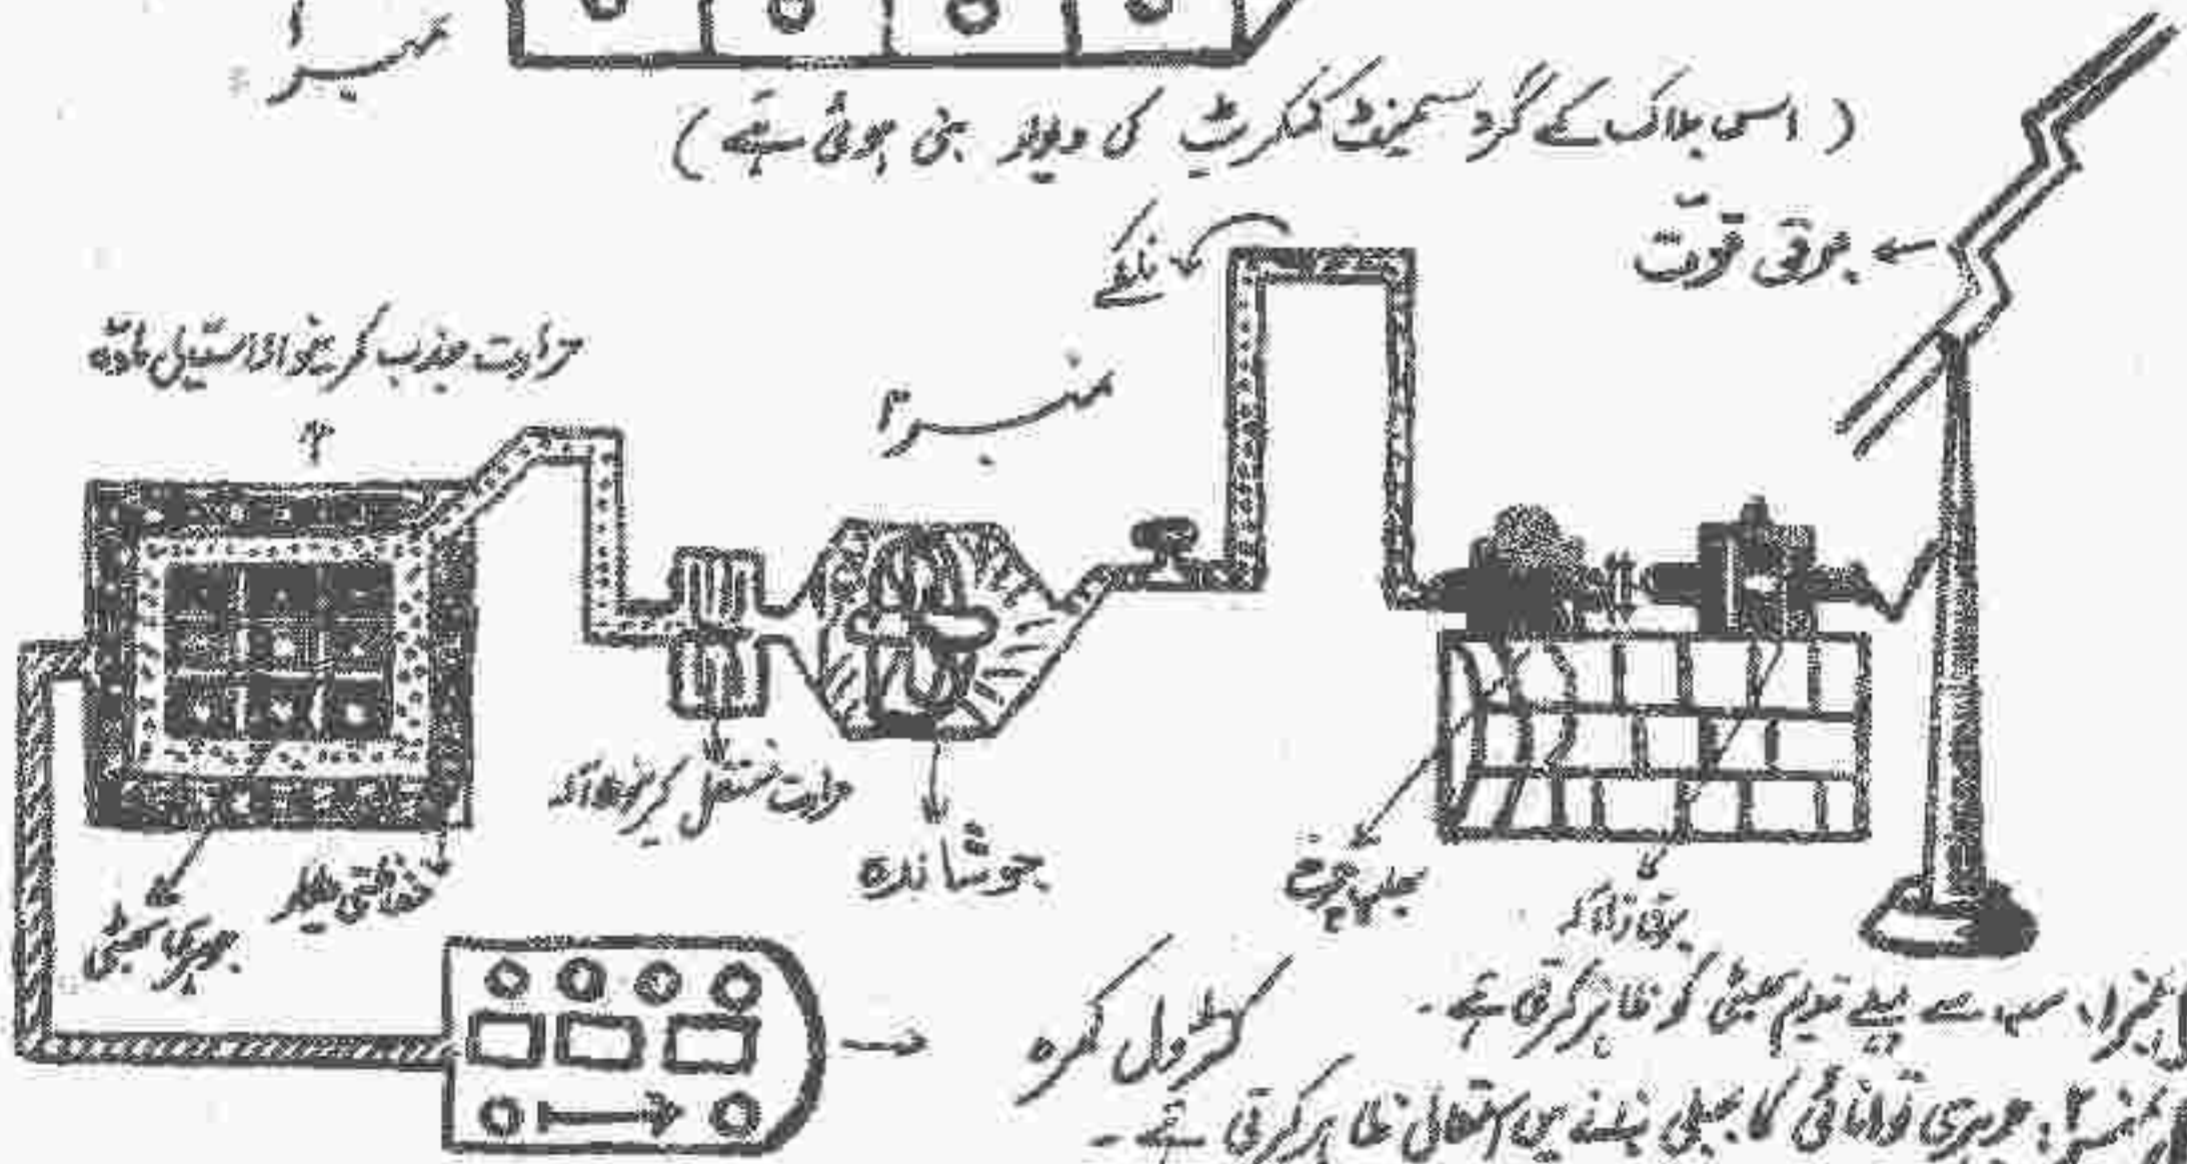 نمبر ۱
( اس بلاک کے گرد سیمنٹ کنکریٹ کی دیوار بنی ہوئی ہے )
برقی قوّت
نلکے
حرارت جذب کرنیوالا سیّال مادّہ
نمبر ۲
حرارت منتقل کرنیوالا آلہ
جوشاندہ
حفاظتی دیوار
جوہری بھٹی
کنٹرول کمرہ
نمبر ۱، سب سے پہلے قدیم بھٹی کو ظاہر کرتی ہے ۔
نمبر ۲، جوہری توانائی کا بجلی بنانے میں استعمال ظاہر کرتی ہے ۔